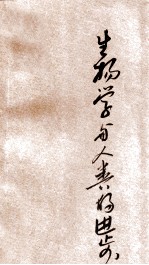 生物学与人类的进步